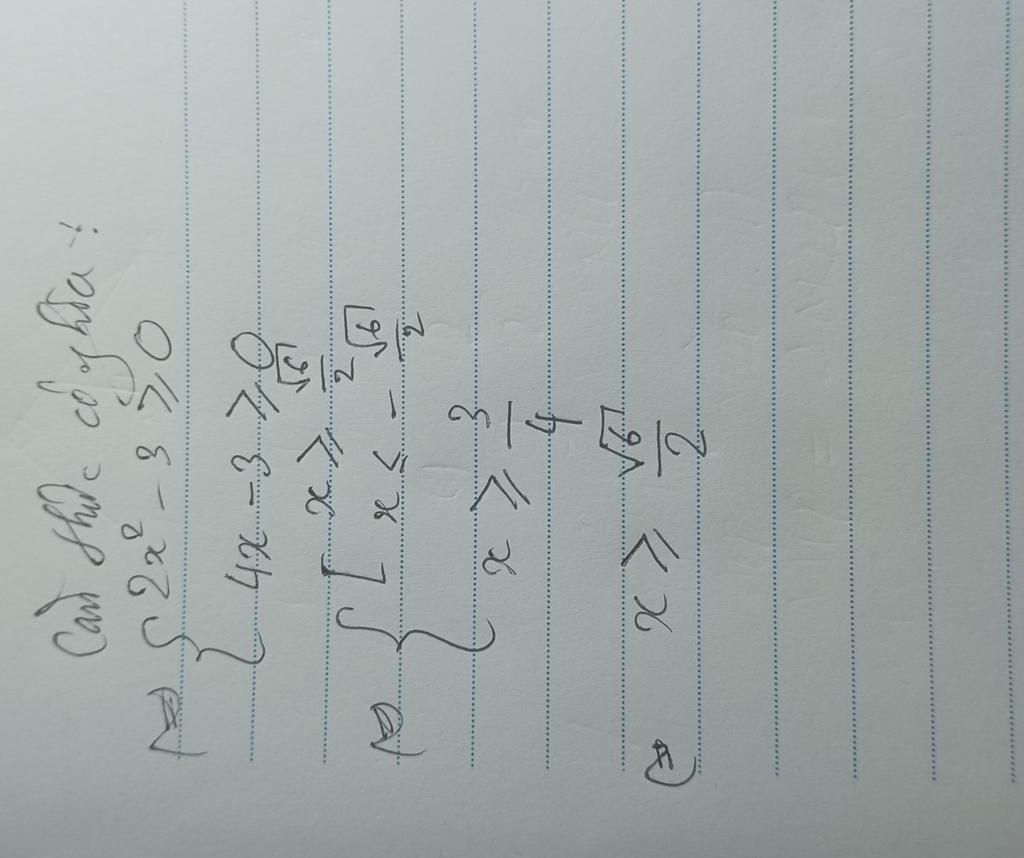 Căn thức có nghĩa :
⇔ { 2x² - 3 ⩾ 0
4x - 3 ⩾ 0
⇔ { [ x ⩾ √6/2
x ≤ - √6/2
x ⩾ 3/4
⇔ x ⩾ √6/2